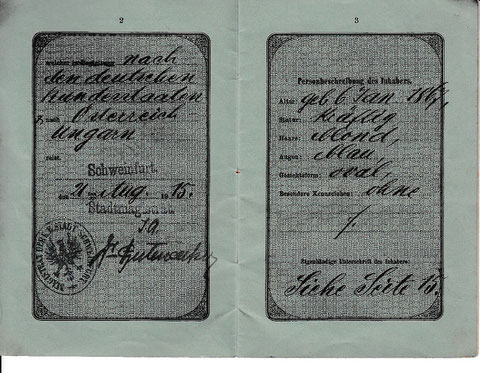 2
nach
den deutschen
Bundesstaaten
u. nach Österreich-
Ungarn
reist.
Schweinfurt,
den 21 ten Aug. 1915.
Stadtmagistrat.
3
Personbeschreibung des Inhabers.
Alter: geb. 6. Jan.
Statur: kräftig
Haare: blond,
Augen: blau,
Gesichtsform: oval,
Besondere Kennzeichen: ohne
Eigenhändige Unterschrift des Inhabers:
Siehe Seite 15.